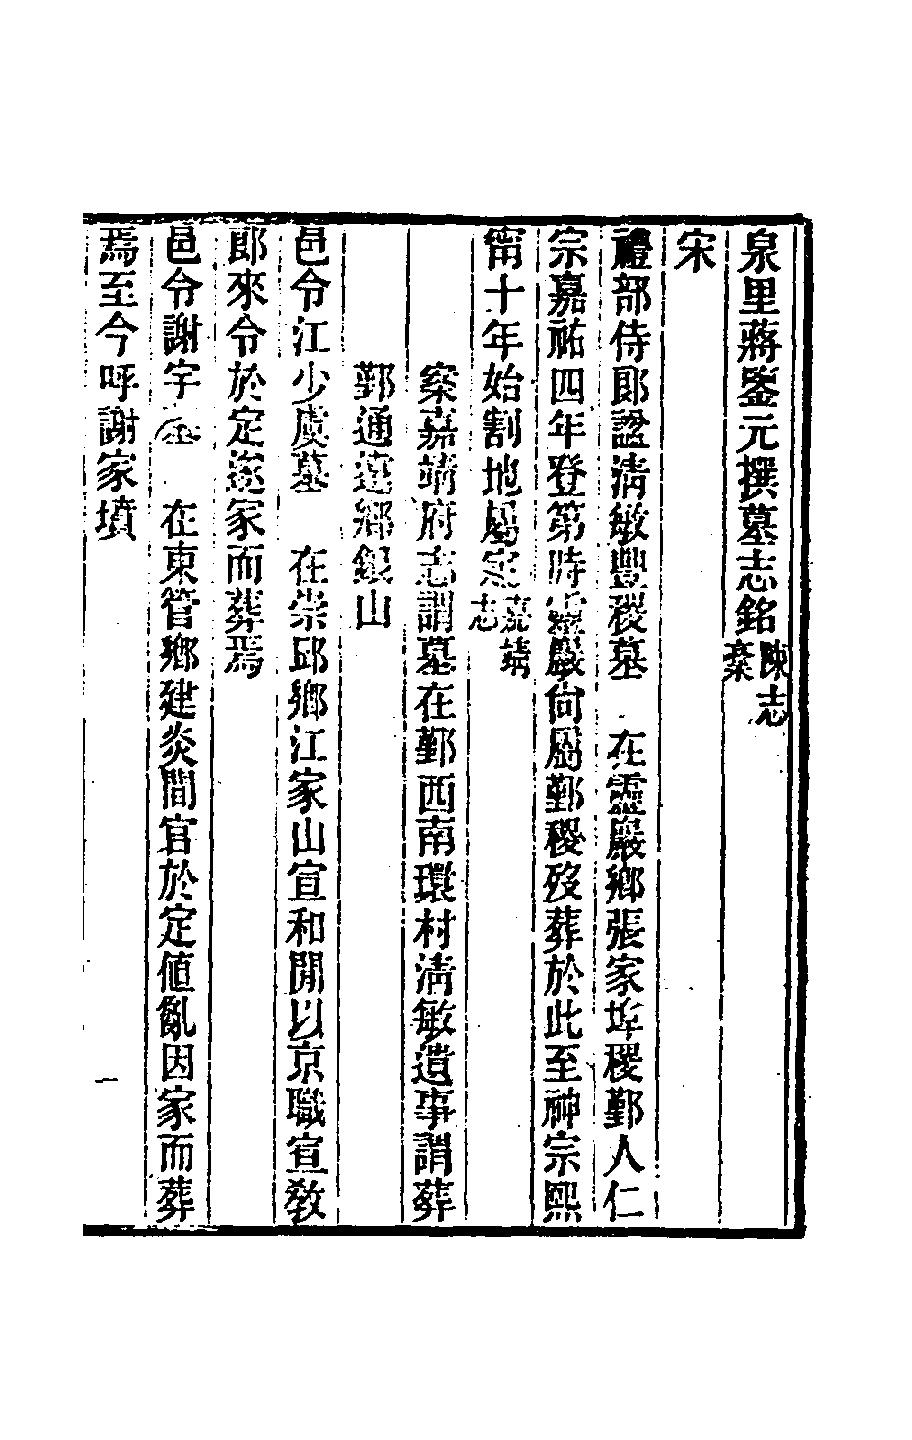 泉里蔣鑒元撰墓志銘陳志稾
宋
禮部侍郎諡淸敏豐稷墓 在靈巖鄉張家埠稷鄞人仁
宗嘉祐四年登第時靈巖尙屬鄞稷歿葬於此至神宗熙
甯十年始割地屬定嘉靖志
案嘉靖府志謂墓在鄞西南環村淸敏遺事謂葬
鄞通遠鄉銀山
邑令江少虞墓 在崇邱鄉江家山宣和閒以京職宣敎
郎來令於定遂家而葬焉
邑令謝宇墓 在東管鄉建炎間官於定値亂因家而葬
焉至今呼謝家墳
一